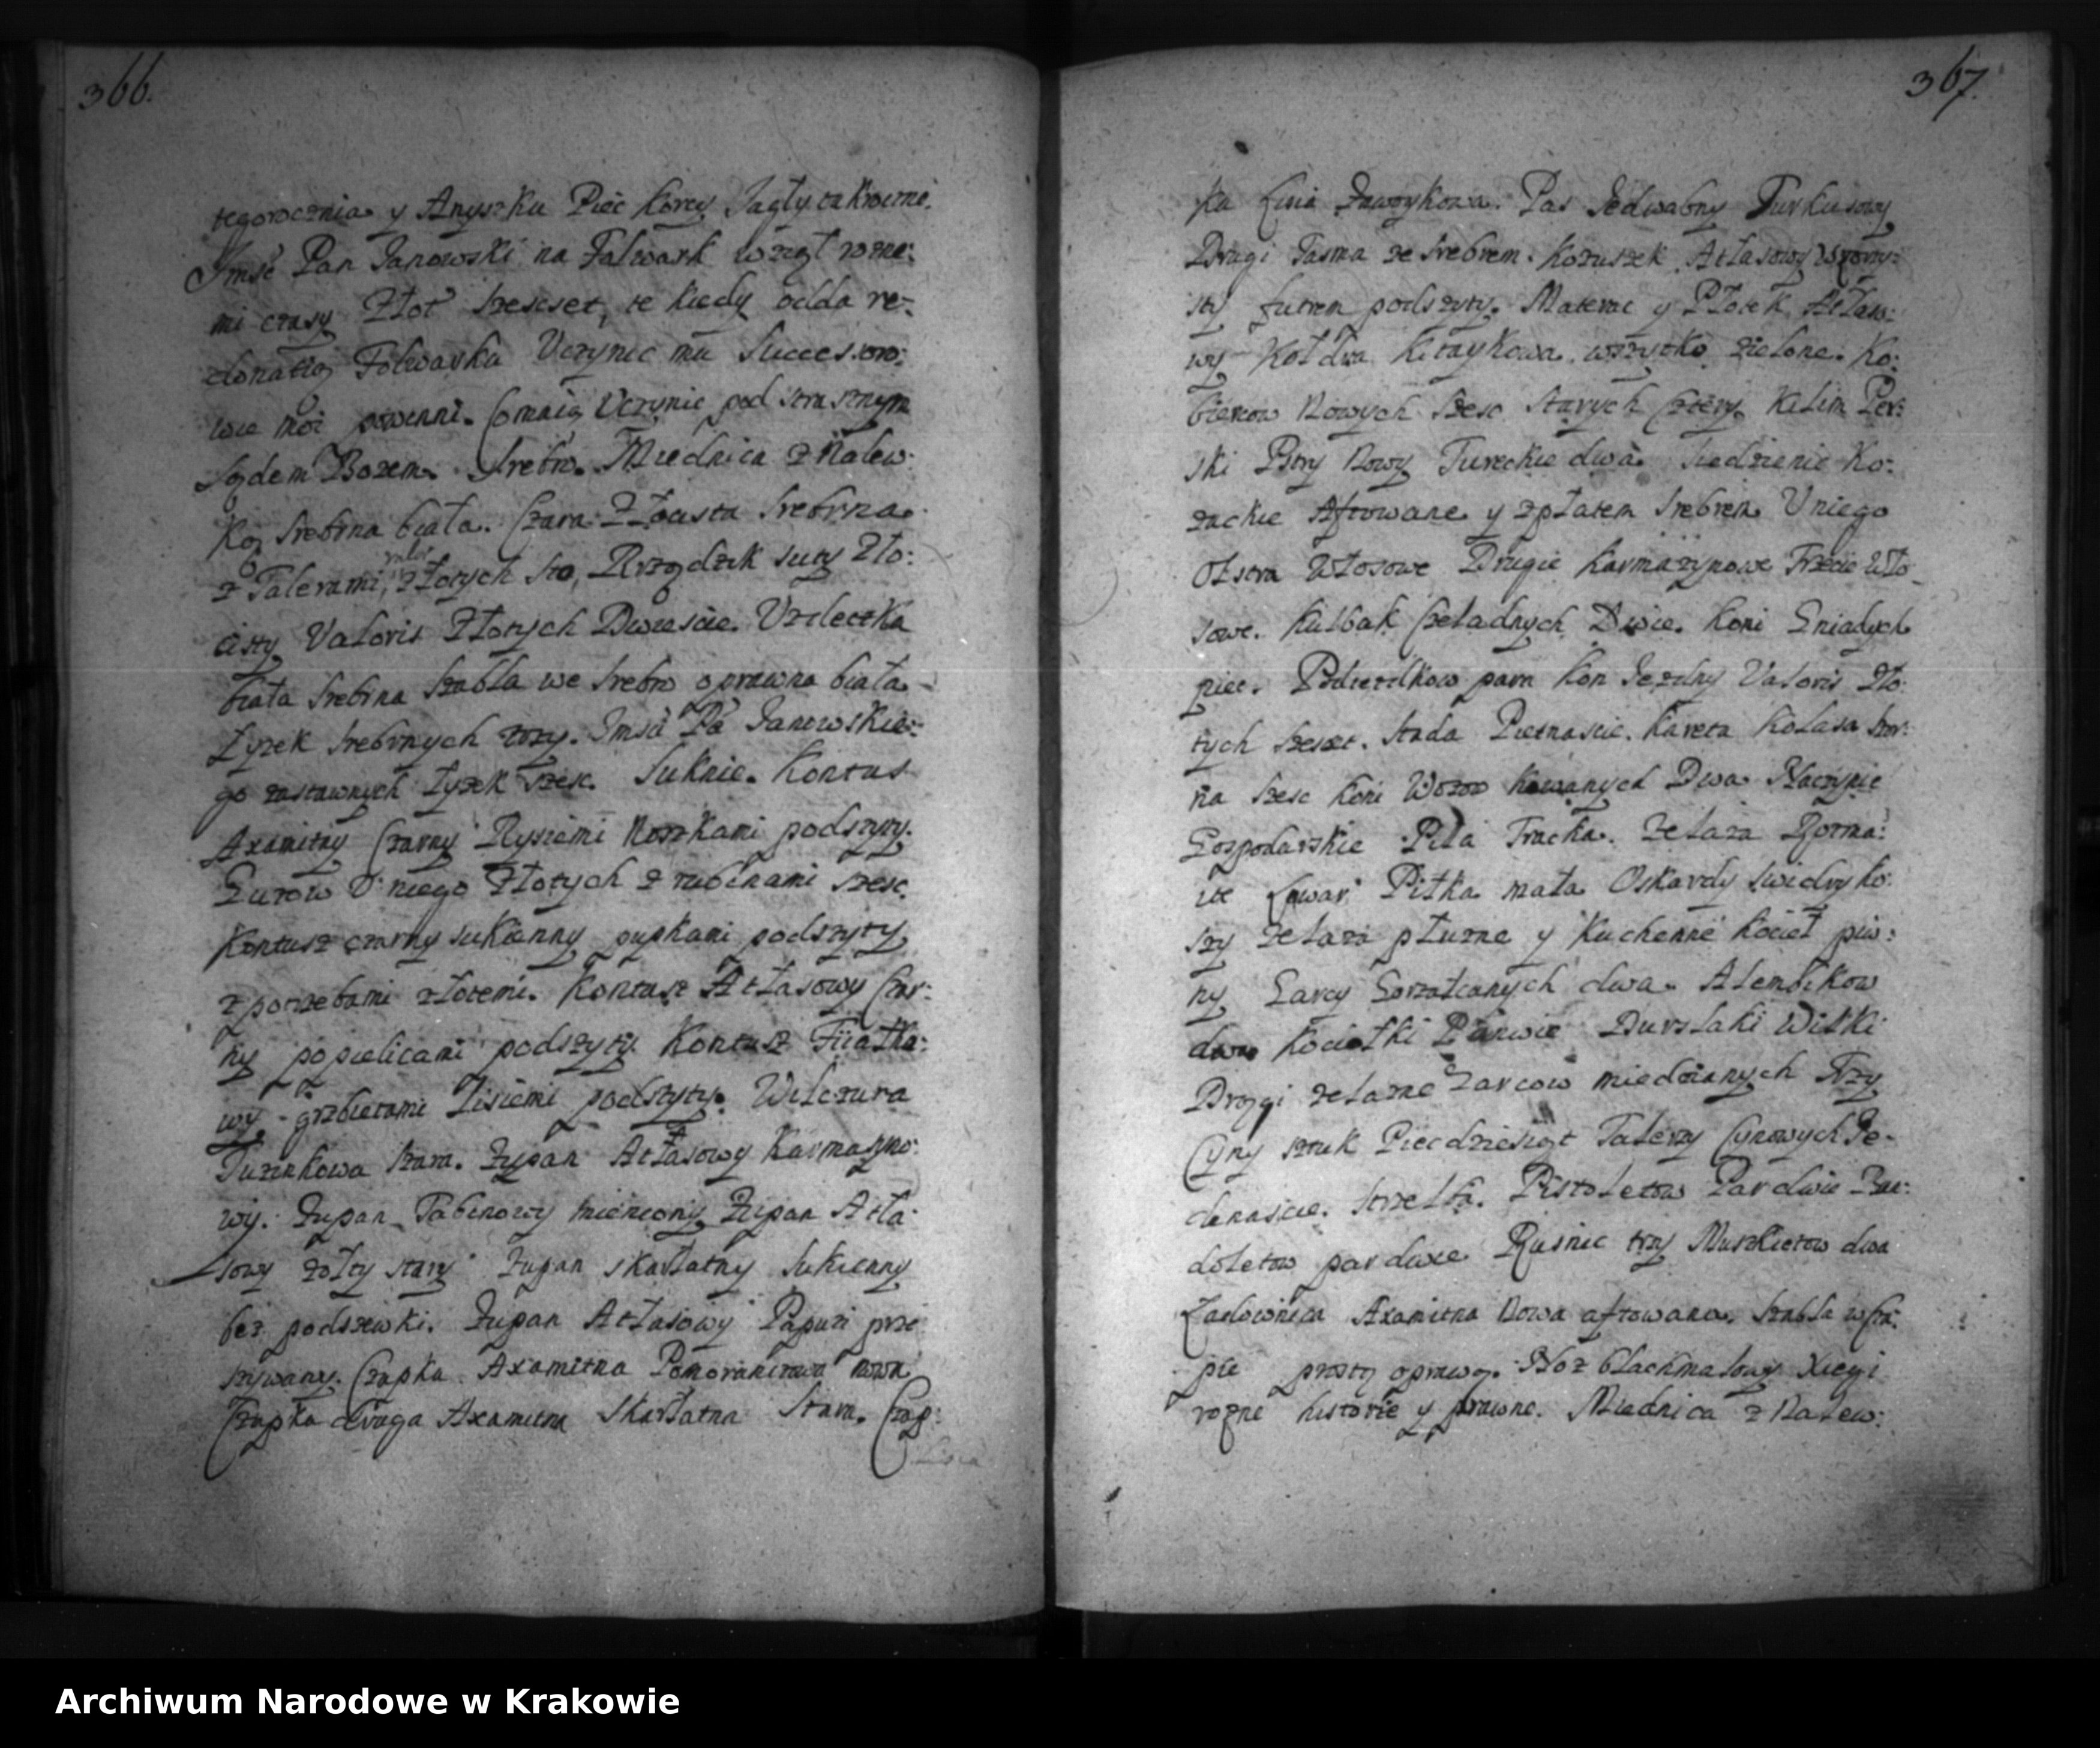 366.
tegorocznia y Anyszku Pięć korcy Jagły takowemi.
Jmsć Pan Janowski na Falwark wziął rozne:
mi czasy Złot szescset, te kiedy odda re:
donatią Folwarku Uczynic mu Succesoro:
wie moi powinni. Uczynic pod strasznym
Sądem Bozem. Srebro. Miednica z Nalew:
ką Srebrna biała. Czara Złocista Srebrna
z Talerami, valor złotych sto, Rządzik suty Zło:
cisty Valoris Złotych Dwiescie. Uzdeczka
biała Srebrna Szabla we Srebro oprawna biała
Łyzek Srebrnych trzy. Jmsci Pa Janowskie:
go zastawnych Łyzek szesc. Suknie. Kontus
Axamitny Czarny Rysiemi Noszkami podszyty.
Guzow U niego Złotych z rubinami szesc.
Kontusz czarny sukienny pupkami podszyty
z potrzebami złotemi. Kontusz Atłasowy Czar:
ny popielicami podszyty. Kontusz Fiiałko:
wy grzbietami Lisiemi podszyty. Wilczura
Tuzinkowa Szara. Zupan Atłasowy Karmazyno:
wy. Zupan Tabinowy mieniony Zupan Atła:
sowy zołty stary Zupan skarłatny Sukienny
bez podszewki. Zupan Atłasowy Papuzi prze
szywany. Czapka Axamitna Pomoranczowa nowa
Czapka druga Axamitna Skarłatna Stara. Czap:
367.
ka Pas Jedwabny Turkusowy
Drugi Tasma ze Srebrem. Kozuszek Atłasowy Wzorzy:
sty futrem podszyty. Materac y Płotek Atłaso:
wy Kołdra Kitaykowa wszytko zielone. Ko:
biercow Nowych Szesc Starych Cztery. Kilim Per:
ski Pstry Nowy Tureckie dwa. Siedzienie Ko:
zackie Aftowane y zpłatem Srebrem U niego
Olstra Włosowe Drugie Karmazynowe Trzecie Wło
sowe. Kulbak Czeladnych Dwie. Koni Gniadych
piec. Podiezdkow para Kon Jezdny Valoris Zło:
tych szescset. Stada Pietnascie. Kareta Kolasa Skor:
na Szesc Koni Wozow kowanych Dwa Naczynie
Gospodarskie Piła Tracka. Zelaza Rozma:
ite Lewar Piłka mała Oskardy Swidry ko:
szy Zelaza płuzne y Kuchenne Kocieł piw:
ny Garcy Gorzałczanych dwa. Alembikow
dwa Kociołki Panwie Durslaki Wilki
Drągi zelazne Garcow miedzianych Trzy
Cyny sztuk Piecdziesiąt Talerzy Cynowych Je:
denascie. Strzelba. Pistoletow Par dwie Ban:
doletow par dwie Rusnic trzy Muszkietow dwa
Ładownica Axamitna Nowa aftowana. Szabla w Cza:
pie prostą oprawą. Noz blachmalowy Xięgi
rozne historie y prawne. Miednica z Nalew:
Archiwum Narodowe w Krakowie